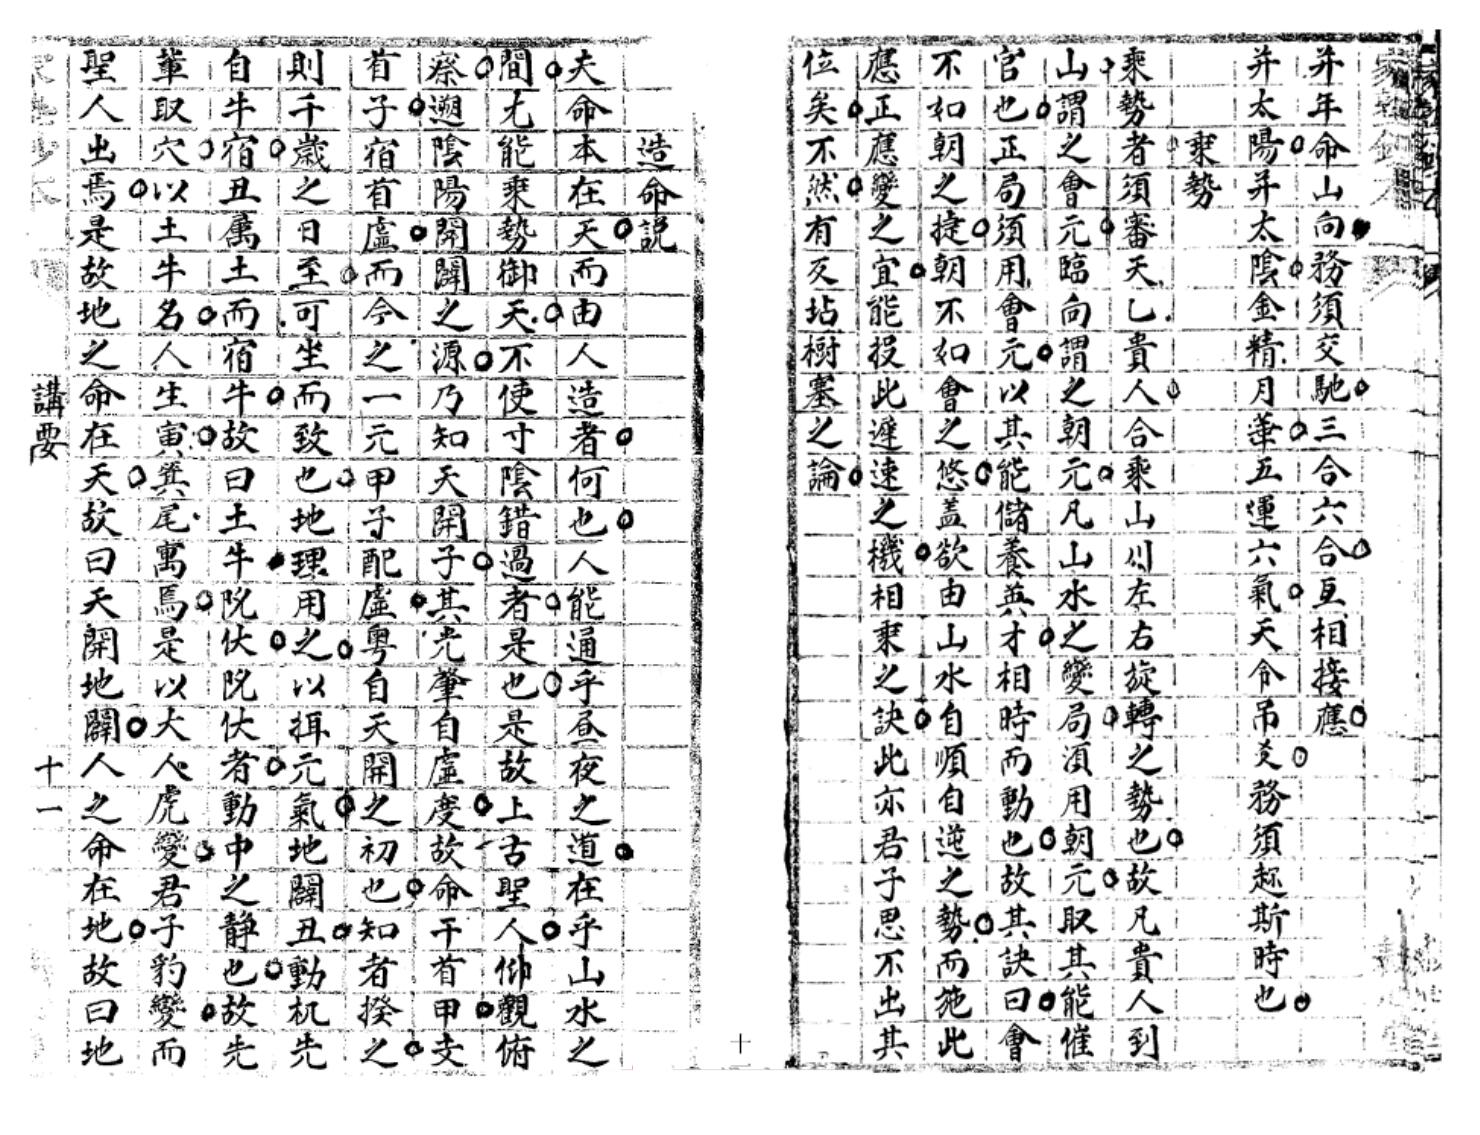 并年命山向務須交馳三合六合互相接應
并太陽并太陰金精月華五運六氣天令吊爻務須趂斯時也
乘勢
乘勢者須審天乙貴人合乘山川左右旋轉之勢也故凡貴人到
山謂之會元臨向謂之朝元凡山水之變局須用朝元取其能催
官也正局須用會元以其能儲養英才相時而動也故其訣曰會
不如朝之捷朝不如會之悠蓋欲由山水自順自逆之勢而施此
應正應變之宜能投此遲速之機相乘之訣此亦君子思不出其
位矣不然有反坫樹塞之論
造命説
夫命本在天而由人造者何也人能通乎昼夜之道在乎山水之
間尢能乘勢御天不使寸陰錯過者是也是故上古聖人仰觀俯
察遡陰陽開闢之源乃知天開子其光肇自虛度故命干首甲支
首子宿首虛而今之一元甲子配虛粤自天開之初也知者揆之
則千歲之日至可坐而致也地理用之以揖元氣地闢丑動机先
自牛宿丑属土而宿牛故曰土牛阢伏阢伏者動中之静也故先
輩取穴以土牛名人生寅箕尾寓焉是以大人虎變君子豹變而
聖人出焉是故地之命在天故曰天開地闢人之命在地故曰地
講要
十一